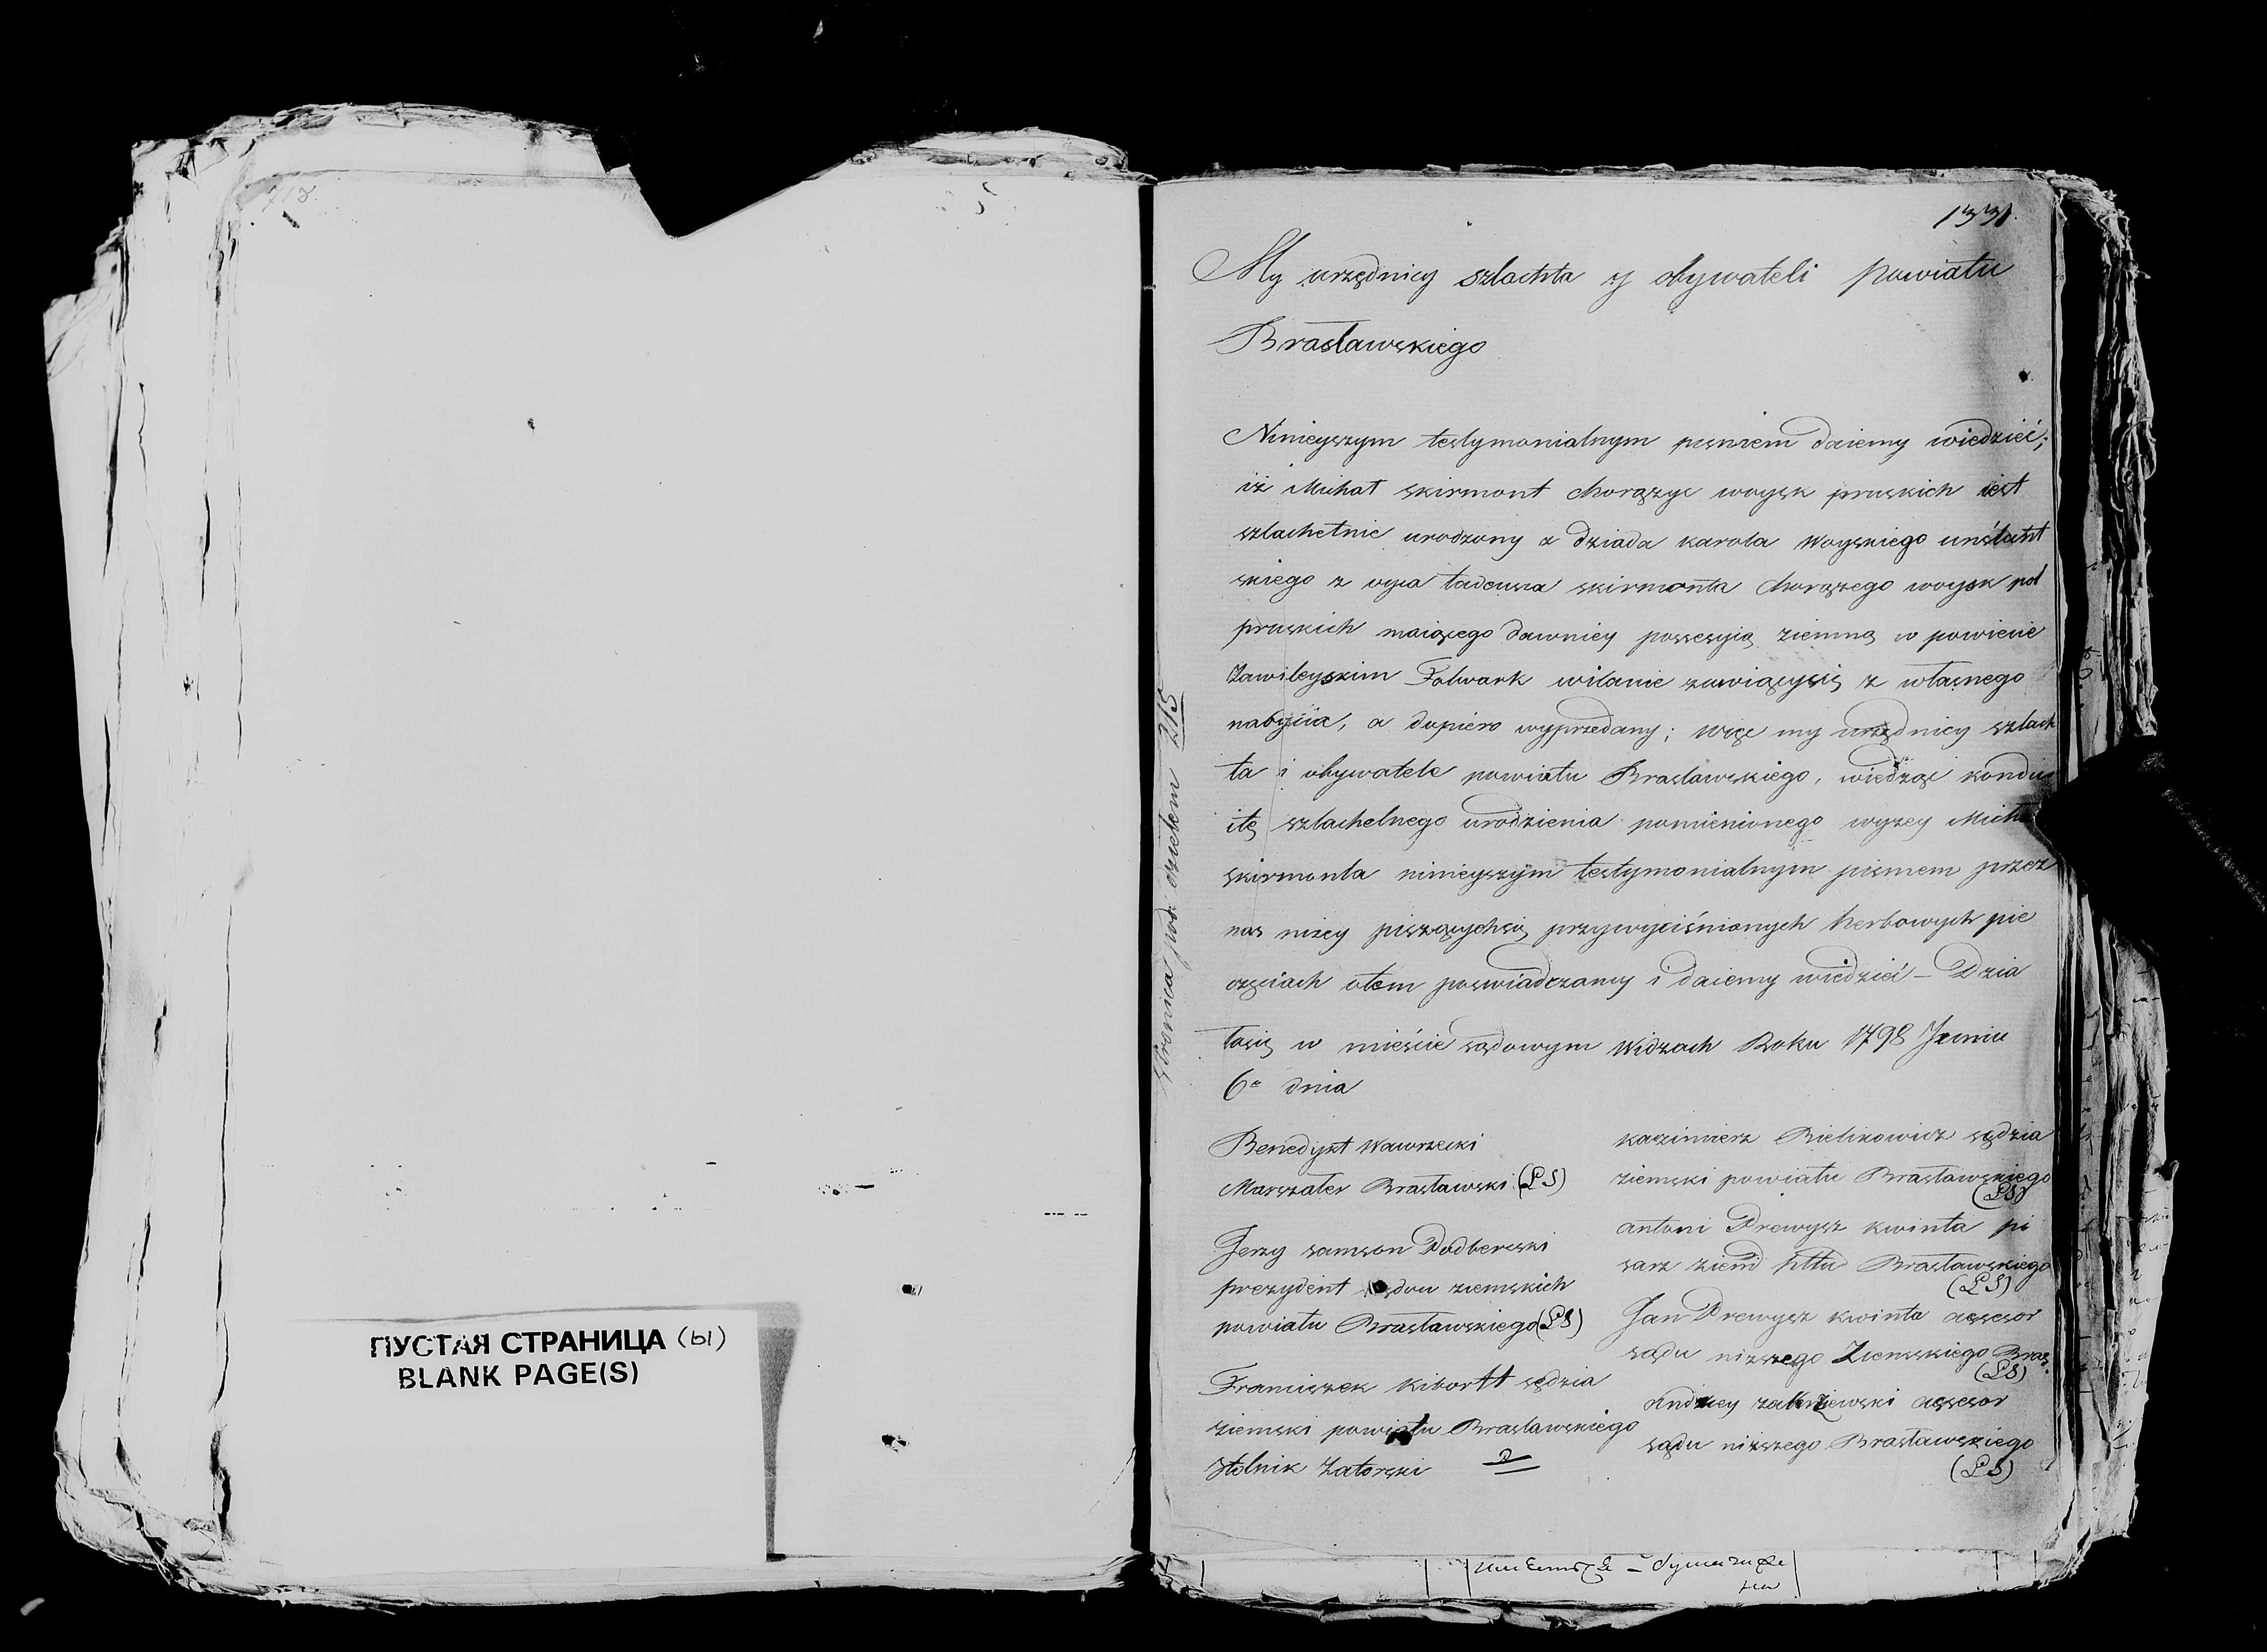 718.
ПУСТАЯ СТРАНИЦА (ы)
BLANK PAGE(S)
1331.
My urzędnicy szlachta y obywateli powiatu
Brasławskiego
Ninieyszym testymonialnym pismem daiemy wiedzieć;
iż Michał skirmont chorąży woysk pruskich iest
szlachetnie urodzony z dziada karola Woyskiego
skiego z oyca tadeusza skirmonta chorążego woysk pol
pruskich maiącego dawniey possesyią ziemną w powiecie
Zawileyskim Folwark wilanie zowiącysię z własnego
nabycia, a dopiero wyprzedany; więc my urzędnicy szlach
ta i obywatele powiatu Brasławskiego, wiedząc kondu
itę szlachetnego urodzienia pomienionego wyzey Micha
skirmonta ninieyszym testymonialnym pismem przez
nas niżey piszącychsię przywyciśnionych herbowych pie
częciach otem poswiadczamy i daiemy wiedzieć – Dzia
łosię w mieście sądowym Widzach Roku 1798 Juniu
6º dnia
stronica pod. 215
Benedykt Wawrzecki
Marszałek Brasławski (LS)
Jerzy samson Podbereski
prezydent sądou ziemskich
powiatu Brasławskiego (LS)
Franciszek kibortt sędzia
ziemski powiatu Brasławskiego
Stolnik Zatorski
kazimierz Bielikowicz sędzia
ziemski powiatu Brasławskiego
(LS)
antoni Drewysz kwinta pi
sarz ziem pttu Brasławskiego
(LS)
Jan Drewysz kwinta assesor
sądu niższego Ziemskiego Bras.
(LS)
Andrzey zakrzewski assesor
sądu niższego Brasławskiego
(LS)